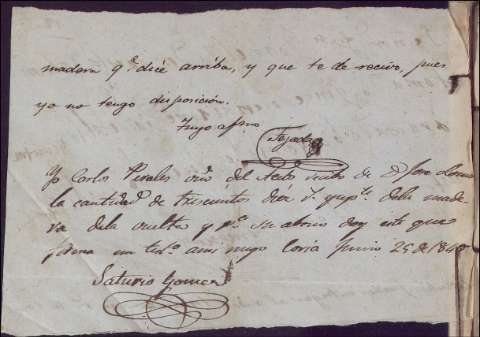 madera q.e dice arriba, y que te de recivo, pues
yo no tengo disposicion.
Tuyo af.mo
Tejada
Yo Carlos Perales del de D. Jose
la cantidad de trescientos diez de la made
ra de la vuelta y p.a su abono doy este que
firma un test.o a mi ruego Coria Junio 25 de 1848
Saturio Gomez